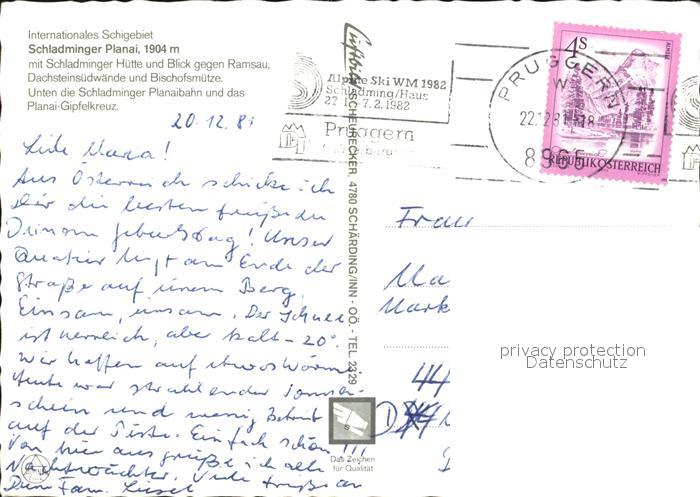 Internationales Schigebiet
Schladminger Planai, 1904 m
mit Schladminger Hütte und Blick gegen Ramsau,
Dachsteinsüdwände und Bischofsmütze.
Unten die Schladminger Planaibahn und das
Planai-Gipfelkreuz.
20.12.81
Liebe Maria!
Aus Österreich schicke ich
Dir die besten Grüße zu
Deinem Geburtstag! Unser
Quartier liegt am Ende der
Straße auf einem Berg.
Einsam, einsam. Der Schnee
ist herrlich, aber kalt -20°.
Wir hoffen auf etwas Wärme.
Heute war strahlender Sonnen-
schein und wenig Betrieb
auf der Piste. Einfach schön!!!
Von hier aus grüße ich alle
Nachtwächter. Viele Grüße an
Deine Fam. Liesel
SCHEURECKER, 4780 SCHÄRDING/INN - OÖ. - TEL. 2329
Alpine Ski WM 1982
Schladming/Haus
7.2.1982
Pruggern
PRUGGERN
22.12.81-18
8965
4S
ALMSEE
REPUBLIK ÖSTERREICH
Frau
Ma
Mark
44
D
Das Zeichen
für Qualität
privacy protection
Datenschutz